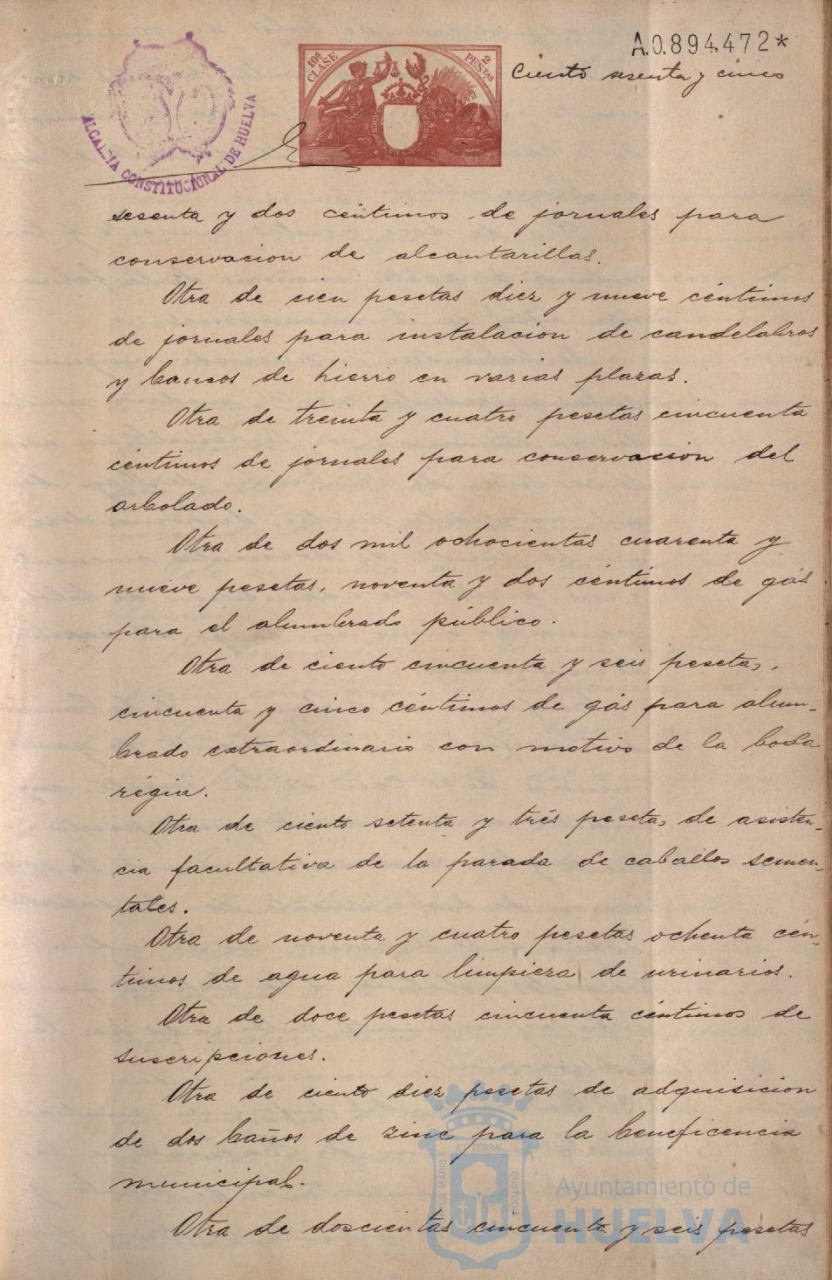 A.0.894.472*
10ª CLASE
2 PESETAS
Ciento sesenta y cinco
ALCALDIA CONSTITUCIONAL DE HUELVA
sesenta y dos céntimos de jornales para
conservacion de alcantarillas.
Otra de cien pesetas diez y nueve céntimos
de jornales para instalacion de candelabros
y bancos de hierro en varias plazas.
Otra de treinta y cuatro pesetas cincuenta
céntimos de jornales para conservacion del
arbolado.
Otra de dos mil ochocientas cuarenta y
nueve pesetas, noventa y dos céntimos de gás
para el alumbrado público.
Otra de ciento cincuenta y seis pesetas,
cincuenta y cinco céntimos de gás para alum-
brado extraordinario con motivo de la boda
régia.
Otra de ciento setenta y trés pesetas de asisten-
cia facultativa de la parada de caballos semen-
tales.
Otra de noventa y cuatro pesetas ochenta cén-
timos de agua para limpieza de urinarios.
Otra de doce pesetas cincuenta céntimos de
suscripciones.
Otra de ciento diez pesetas de adquisicion
de dos baños de zinc para la beneficencia
municipal.
Otra de doscientas cincuenta y seis pesetas
Ayuntamiento de
HUELVA